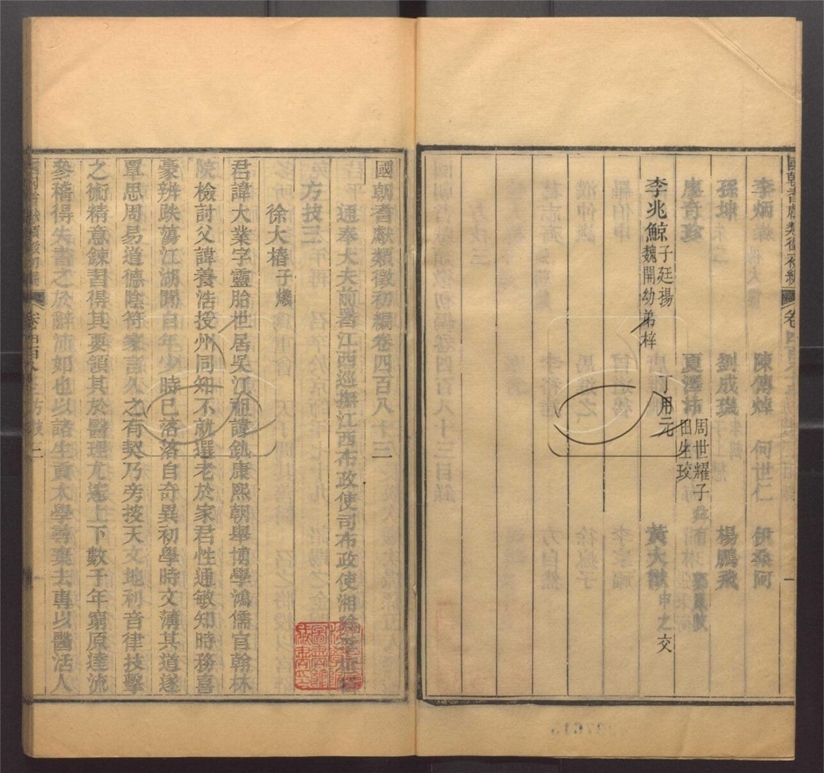 李炳 陳傳焯 何世仁 伊桑阿
孫坤 劉成 楊鵬飛
廖奇珍 夏澤沛
周世耀子
田生玫
李兆鯨 子廷揚 魏開幼弟梓 丁用元 黃大猷 申之交
國朝耆獻類徵初編卷四百八十三
通奉大夫前署江西巡撫江西布政使司布政使湘陰
方技三
徐大椿 子爔
君諱大業字靈胎世居吳江祖諱釚康熙朝舉博學鴻儒官翰林
院檢討父諱養浩授州同知不就選老於家君性通敏知時務喜
豪辨跌蕩江湖間自年少時已落落自奇異初學時文薄其道遂
覃思周易道德陰符家言久之有契乃旁按天文地利音律技擊
之術精意鍊習得其要領其於醫理尤邃上下數千年窮原達流
參稽得失著之於辭沛如也以諸生貢太學尋棄去專以醫活人